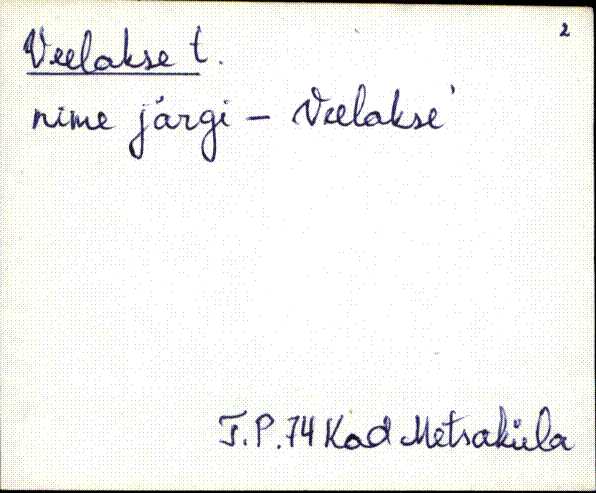 2
Veelakse t.
nime järgi – Veelakse'
T.P.74 Kad Metsaküla